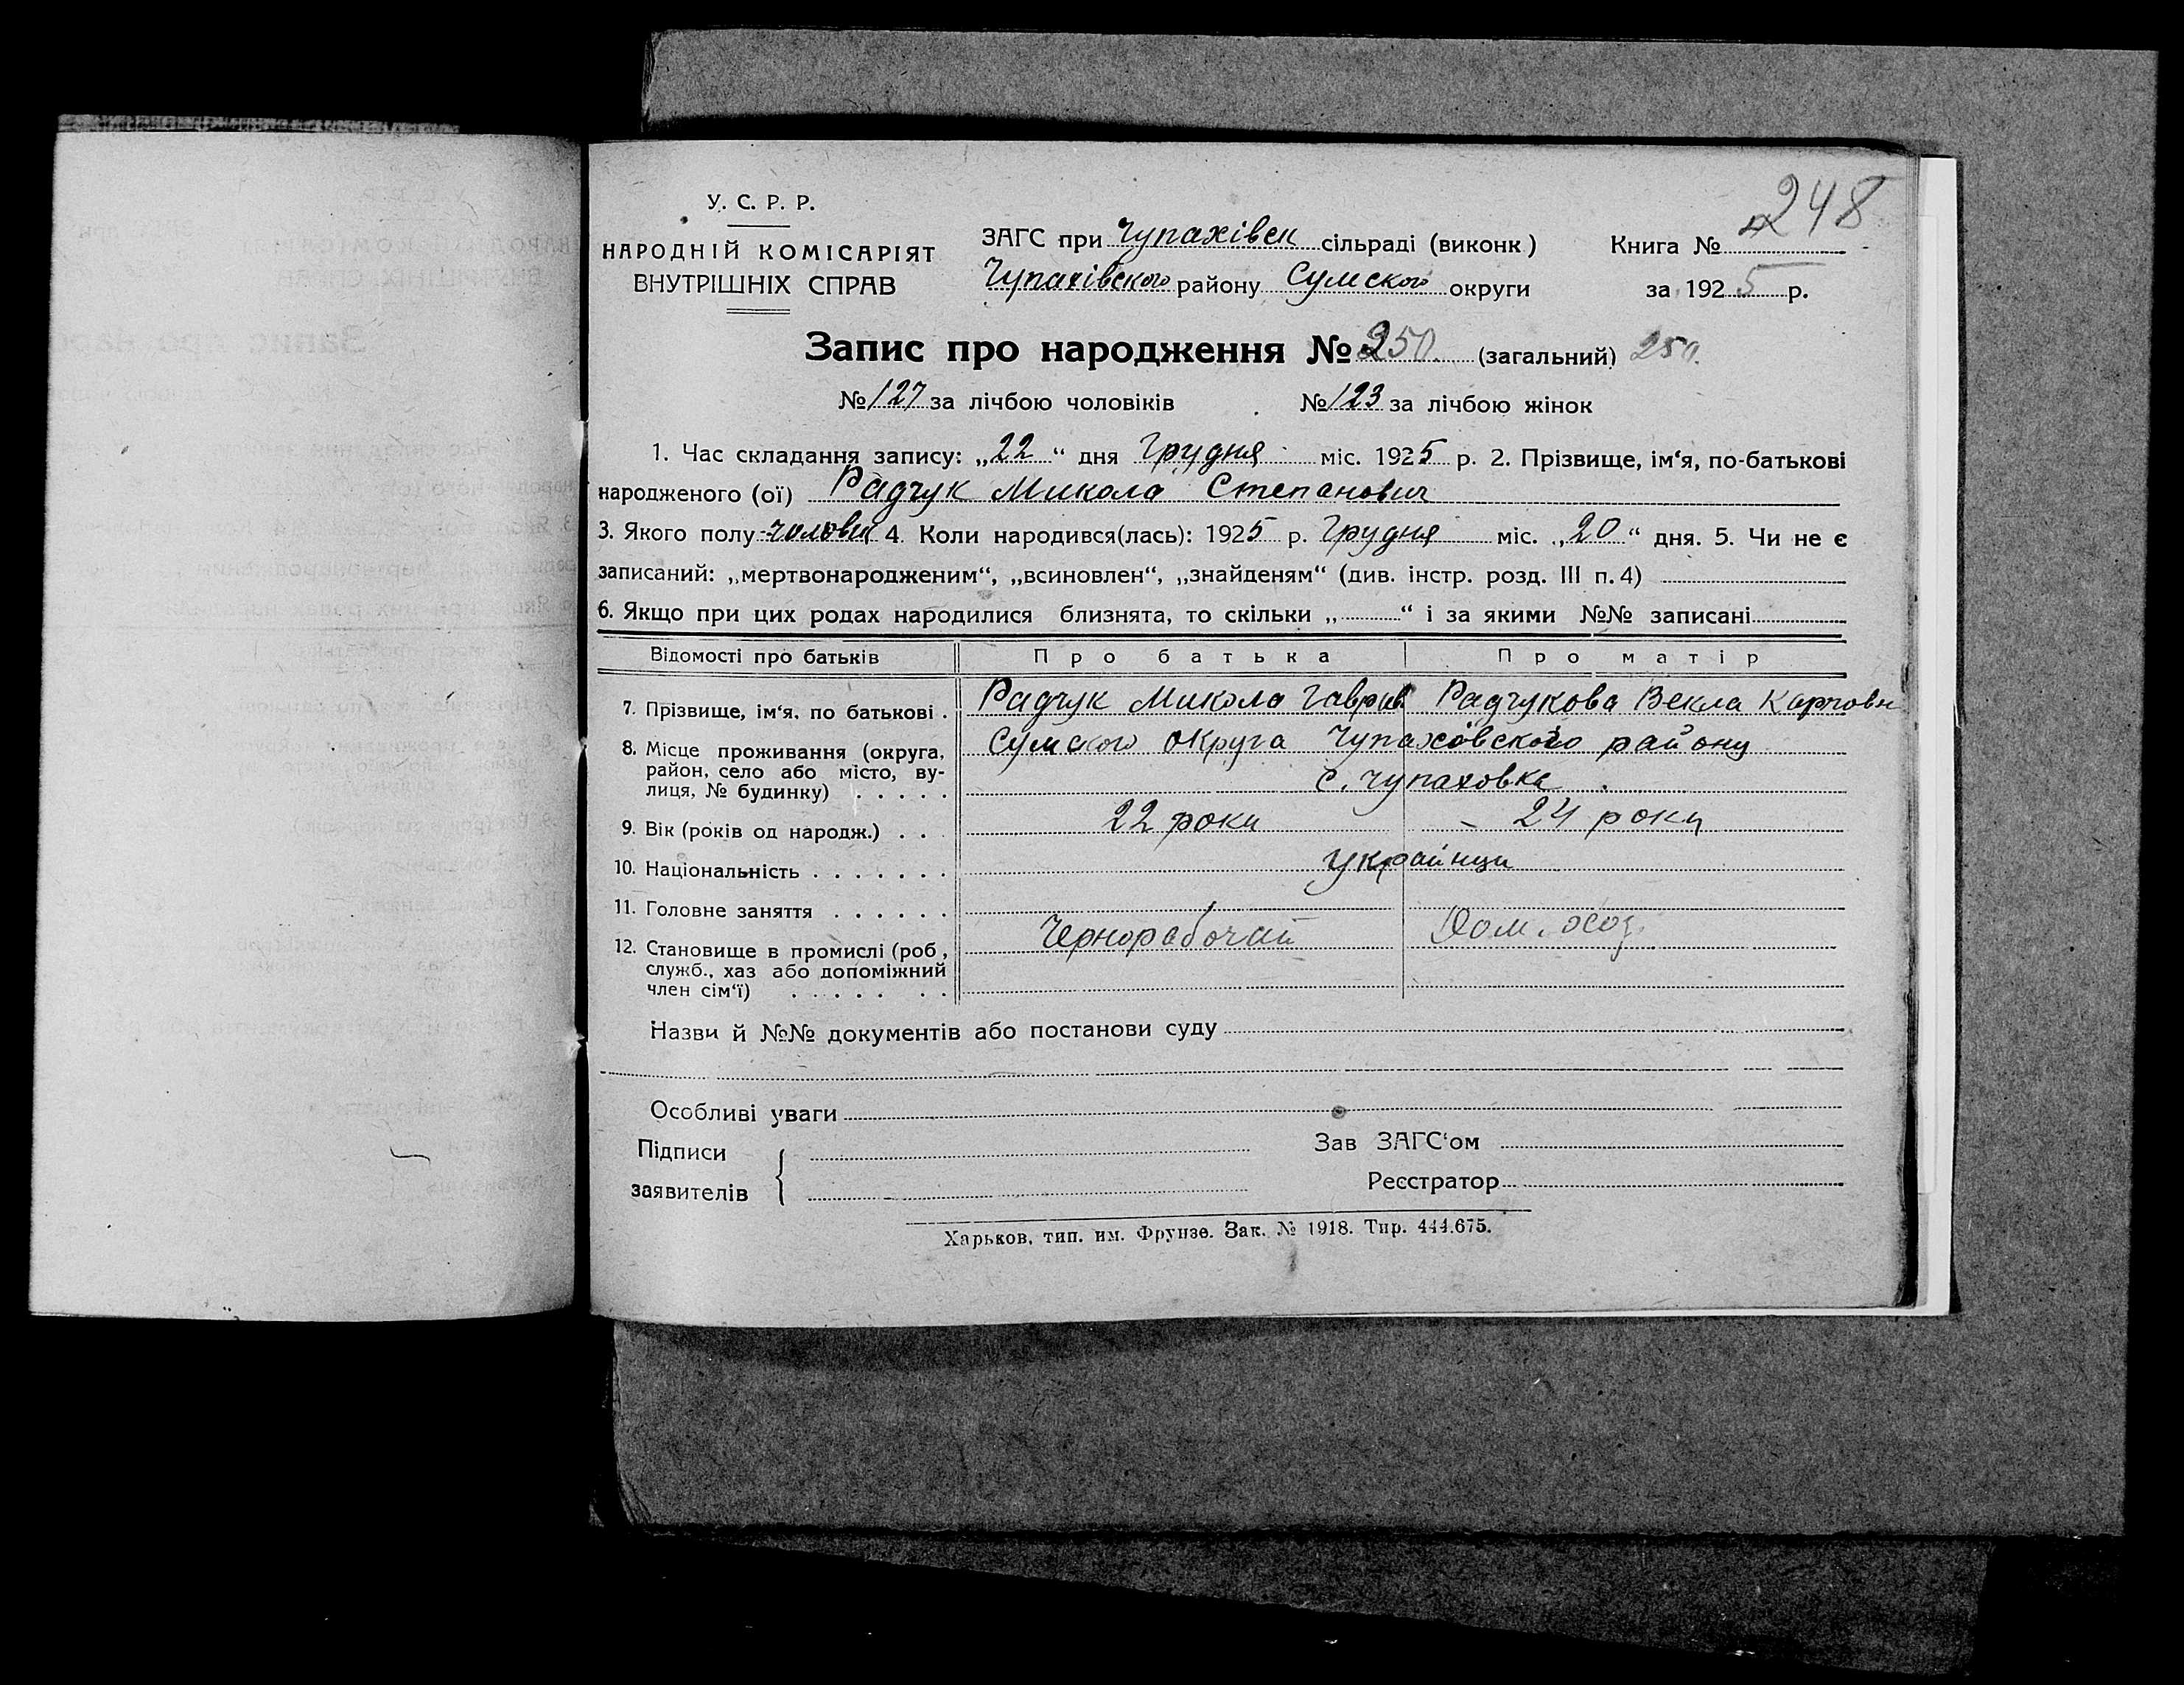 248
У. С. Р. Р.
НАРОДНІЙ КОМІСАРІЯТ
ВНУТРІШНІХ СПРАВ
ЗАГС при Чупахівск сільраді (виконк) Книга №
Чупахівского району Сумского округи за 1925 р.
Запис про народження № 250. (загальний) 250.
№ 127 за лічбою чоловіків № 123 за лічбою жінок
1. Час складання запису: „22“ дня Грудня міс. 1925 р. 2. Прізвище, ім‘я, по-батькові
народженого (ої) Радчук Микола Степанович
3. Якого полу чоловік 4. Коли народився(лась): 1925 р. Грудня міс. „20“ дня. 5. Чи не є
записаний: „мертвонародженим“, „всиновлен“, „знайденям“ (див. інстр. розд. III п. 4)
6. Якщо при цих родах народилися близнята, то скільки „ “ і за якими №№ записані
Відомості про батьків Про батька Про матір
7. Прізвище, ім‘я, по батькові . Радчук Микола Гаврив. Радчукова Векла Карповн
8. Місце проживання (округа, район, село або місто, вулиця, № будинку) . . . . . Сумского округа Чупаховского району
с. Чупаховка
9. Вік (років од народж.) . . 22 роки 24 роки
10. Національність . . . . . . . Украйнци
11. Головне заняття . . . . . .
12. Становище в промислі (роб., служб., хаз або допоміжний член сім‘ї) . . . . . . . Чернорабочий Дом. хоз.
Назви й №№ документів або постанови суду
Особливі уваги
Підписи
заявителів
Зав ЗАГС‘ом
Реєстратор
Харьков, тип. им. Фрунзе. Зак. № 1918. Тир. 444.675.